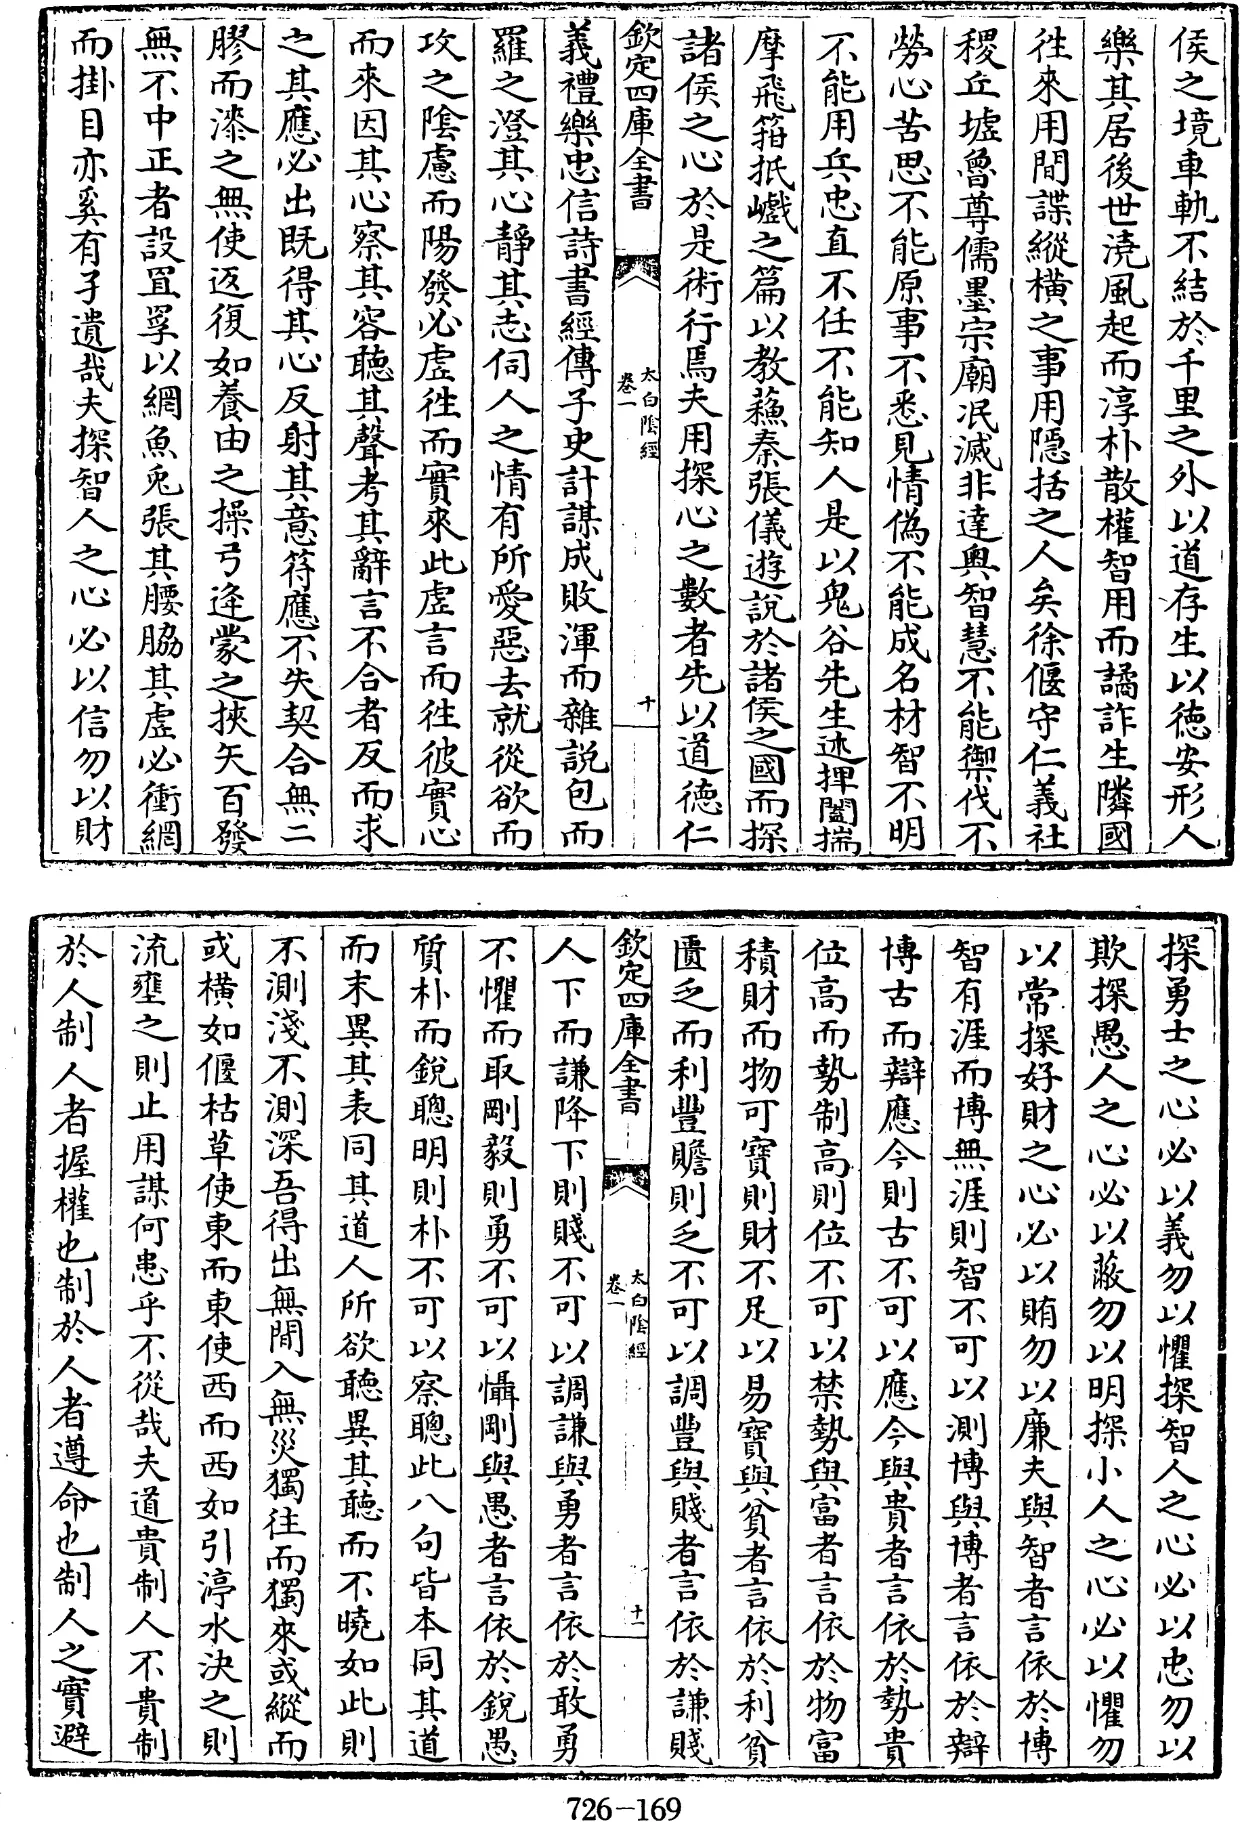 侯之境車軌不結於千里之外以道存生以徳安形人
樂其居後世澆風起而淳朴散權智用而譎詐生隣國
徃來用間諜縱橫之事用隠括之人矣徐偃守仁義社
稷丘墟魯尊儒墨宗廟泯滅非達奥智慧不能禦伐不
勞心苦思不能原事不悉見情偽不能成名材智不明
不能用兵忠直不任不能知人是以鬼谷先生述捭闔揣
摩飛箝抵巇之篇以教蘇秦張儀遊説於諸侯之國而探
諸侯之心於是術行焉夫用探心之數者先以道徳仁
欽定四庫全書
太白陰經
卷一
十
義禮樂忠信詩書經傳子史計謀成敗渾而雜説包而
羅之澄其心靜其志伺人之情有所愛惡去就從欲而
攻之陰慮而陽發必虚徃而實來此虚言而徃彼實心
而來因其心察其容聽其聲考其辭言不合者反而求
之其應必出既得其心反射其意符應不失契合無二
膠而漆之無使返復如養由之操弓逄蒙之挾矢百發
無不中正者設罝罘以網魚兎張其腰脇其虚必衝網
而掛目亦奚有孑遺哉夫探智人之心必以信勿以財
探勇士之心必以義勿以懼探智人之心必以忠勿以
欺探愚人之心必以蔽勿以明探小人之心必以懼勿
以常探好財之心必以賄勿以廉夫與智者言依於博
智有涯而博無涯則智不可以測博與博者言依於辯
博古而辯應今則古不可以應今與貴者言依於勢貴
位高而勢制高則位不可以禁勢與富者言依於物富
積財而物可寳則財不足以易寳與貧者言依於利貧
匱乏而利豐贍則乏不可以調豐與賤者言依於謙賤
欽定四庫全書
太白陰經
卷一
十一
人下而謙降下則賤不可以調謙與勇者言依於敢勇
不懼而取剛毅則勇不可以懾剛與愚者言依於鋭愚
質朴而鋭聰明則朴不可以察聰此八句皆本同其道
而末異其表同其道人所欲聽異其聽而不曉如此則
不測淺不測深吾得出無間入無災獨往而獨來或縱而
或橫如偃枯草使東而東使西而西如引渟水決之則
流壅之則止用謀何患乎不從哉夫道貴制人不貴制
於人制人者握權也制於人者遵命也制人之實避
726-169